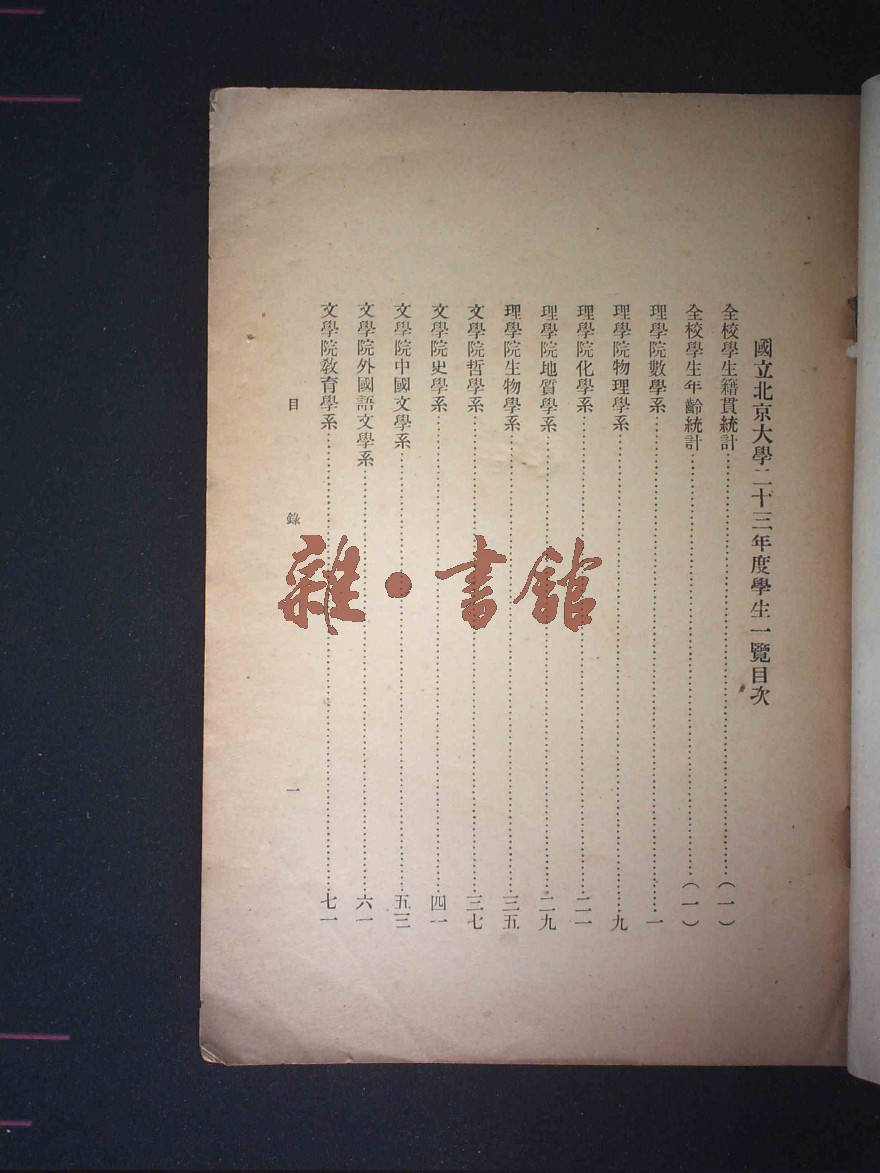 國立北京大學二十三年度學生一覽目次
全校學生籍貫統計……(一)
全校學生年齡統計……(一)
理學院數學系……一
理學院物理學系……九
理學院化學系……二一
理學院地質學系……二九
理學院生物學系……三五
文學院哲學系……三七
文學院史學系……四一
文學院中國文學系……五三
文學院外國語文學系……六一
文學院教育學系……七一
目錄 一
雜·書館